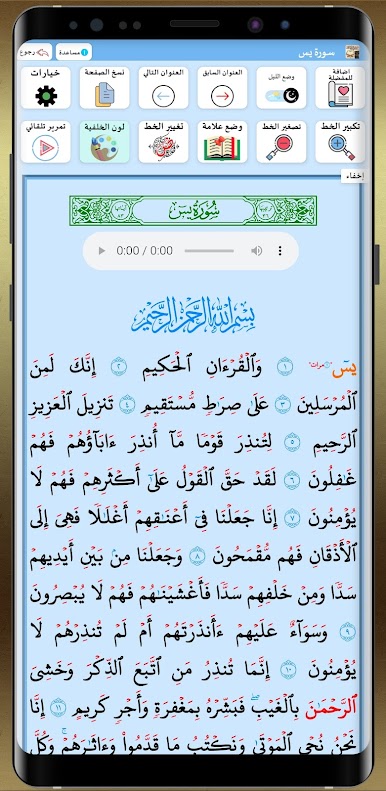 سورة يس
مساعدة
رجوع
اضافة للمفضلة
وضع الليل
العنوان السابق
العنوان التالي
نسخ الصفحة
خيارات
تكبير الخط
تصغير الخط
وضع علامة
تغيير الخط
لون الخلفية
تمرير تلقائي
إخفاء
سُورَةُ يسٓ
0:00 / 0:00
بِسْمِ اللَّهِ الرَّحْمَٰنِ الرَّحِيمِ
يسٓ ١ وَالْقُرْءَانِ الْحَكِيمِ ٢ إِنَّكَ لَمِنَ
الْمُرْسَلِينَ ٣ عَلَىٰ صِرَٰطٍ مُّسْتَقِيمٍ ٤ تَنزِيلَ الْعَزِيزِ
الرَّحِيمِ ٥ لِتُنذِرَ قَوْمًا مَّآ أُنذِرَ ءَابَآؤُهُمْ فَهُمْ
غَٰفِلُونَ ٦ لَقَدْ حَقَّ الْقَوْلُ عَلَىٰٓ أَكْثَرِهِمْ فَهُمْ لَا
يُؤْمِنُونَ ٧ إِنَّا جَعَلْنَا فِىٓ أَعْنَٰقِهِمْ أَغْلَٰلًا فَهِىَ إِلَى
الْأَذْقَانِ فَهُم مُّقْمَحُونَ ٨ وَجَعَلْنَا مِنۢ بَيْنِ أَيْدِيهِمْ
سَدًّا وَمِنْ خَلْفِهِمْ سَدًّا فَأَغْشَيْنَٰهُمْ فَهُمْ لَا يُبْصِرُونَ
٩ وَسَوَآءٌ عَلَيْهِمْ ءَأَنذَرْتَهُمْ أَمْ لَمْ تُنذِرْهُمْ لَا
يُؤْمِنُونَ ١٠ إِنَّمَا تُنذِرُ مَنِ اتَّبَعَ الذِّكْرَ وَخَشِىَ
الرَّحْمَٰنَ بِالْغَيْبِ ۖ فَبَشِّرْهُ بِمَغْفِرَةٍ وَأَجْرٍ كَرِيمٍ ١١ إِنَّا
نَحْنُ نُحْىِ الْمَوْتَىٰ وَنَكْتُبُ مَا قَدَّمُوا۟ وَءَاثَٰرَهُمْ ۚ وَكُلَّ